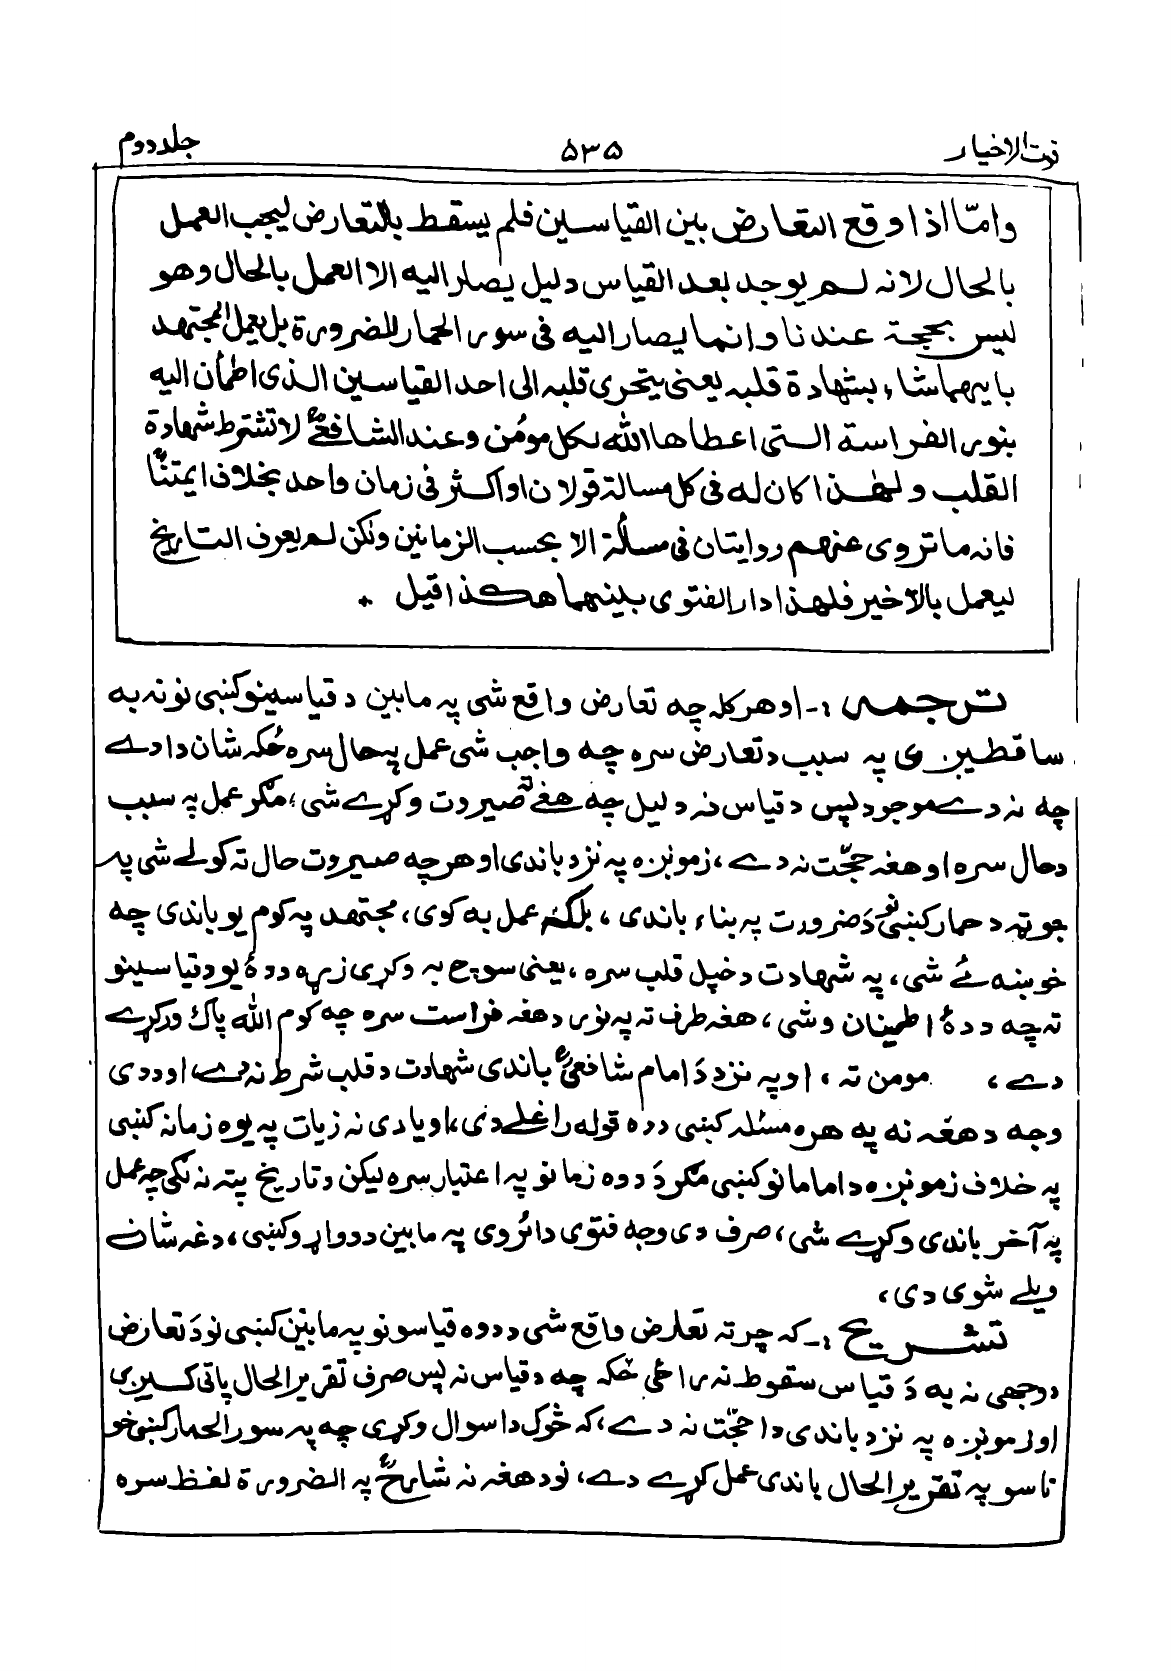 قوت الاخیار ۵۳۵ جلد دوم
وامّا اذا وقع التعارض بین القیاسین فلم یسقط بالتعارض لیجب العمل
بالحال لانہ لم یوجد بعد القیاس دلیل یصار الیه الا العمل بالحال وهو
لیس بحجۃ عندنا وانما یصار الیه فی سور الحمار للضرورة بل یعمل المجتهد
بایهما شاء بشهادة قلبه یعنی یتحری قلبه الی احد القیاسین الذی اطمأن الیه
بنور الفراسة التی اعطاها الله لکل مومن وعند الشافعیؒ لا تشترط شهادة
القلب ولهٰذا کان له فی کل مسالة قولان او اکثر فی زمان واحد بخلاف ایمتناؒ
فانه ما تروی عنهم روایتان فی مسألة الا بحسب الزمانین ولٰکن لم یعرف التاریخ
لیعمل بالآخیر فلهذا دار الفتوی بینهما هکذا قیل *
ترجمه :- او هرکله چه تعارض واقع شی په مابین د قیاسینو کښی نو نه به
ساقطیږی په سبب د تعارض سره چه واجب شی عمل په حال سره ځکه شان دا دے
چه نه دے موجود پس د قیاس نه دلیل چه هغے ته صیروت وکړے شی، مګر عمل په سبب
د حال سره او هغه حجّت نه دے، زمونږه په نزد باندی او هر چه صیروت حال ته کولے شی په
جوټه د حمار کښی نو دَ ضرورت په بناء باندی، بلکه عمل به کوی، مجتهد په کوم یو باندی چه
خوښه ئے شی، په شهادت د خپل قلب سره، یعنی سوچ به وکړی زړه ددهٔ یو د قیاسینو
ته چه ددهٔ اطمینان وشی، هغه طرف ته په نور د هغه فراست سره چه کوم الله پاک ورکړے
دے، مومن ته، او په نزد دَ امام شافعیؒ باندی شهادت د قلب شرط نه دے، او ددی
وجه د هغه نه په هره مسئله کښی دوه قوله راغلے دی، او یا دی نه زیات په یوه زمانه کښی
په خلاف زمونږه د امامانو کښی مګر دَ دوه زمانو په اعتبار سره لیکن د تاریخ پته نه لګی چه عمل
په آخر باندی وکړے شی، صرف دی وجه فتوی دائروی په مابین د دواړو کښی، دغه شانے
ویلے شوی دی،
تشریح :- که چرته تعارض واقع شی د دوه قیاسونو په مابین کښی نو دَ تعارض
د وجهی نه په دَ قیاس سقوط نه راځی ځکه چه د قیاس نه پس صرف تقریر الحال پاتی کیږی
او زمونږه په نزد باندی دا حجّت نه دے، که څوک دا سوال وکړی چه په سور الحمار کښی خو
تاسو په تقریر الحال باندی عمل کړے دے، نو د هغه نه شارحؒ په الضرورة لفظ سره